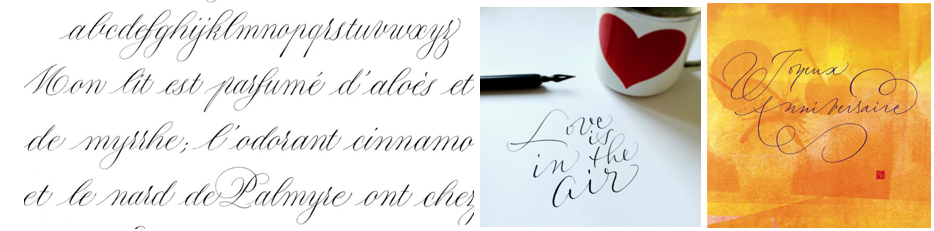 abcdefghijklmnopqrstuvwxyz
Mon lit est parfumé d'aloès et
de myrrhe; l'odorant cinnamo
et le nard de Palmyre ont chez
Love
is
in the
air
Joyeux
Anniversaire